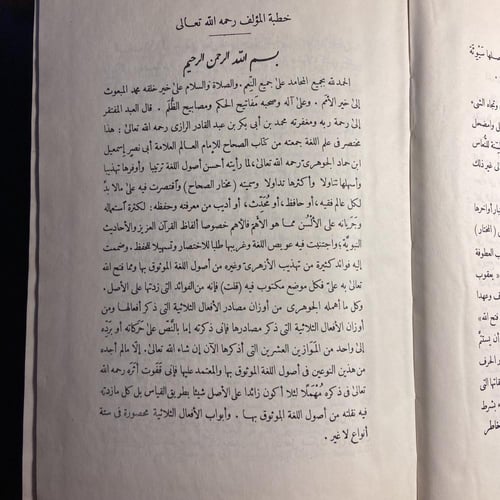 خطبة المؤلف رحمه الله تعالى
بسم الله الرحمن الرحيم
الحمد لله بجميع المحامد على جميع النعم . والصلاة والسلام على خير خلقه محمد المبعوث
إلى خير الأمم . وعلى آله وصحبه مفاتيح الحكم ومصابيح الظلم . قال العبد المفتقر
إلى رحمة ربه ومغفرته محمد بن أبى بكر بن عبد القادر الرازى رحمه الله تعالى : هذا
مختصر فى علم اللغة جمعته من كتاب الصحاح للإمام العالم العلامة أبى نصر إسمعيل
ابن حماد الجوهرى رحمه الله تعالى، لما رأيته أحسن أصول اللغة ترتيبا وأوفرها تهذيبا
وأسهلها تناولا وأكثرها تداولا وسميته (مختار الصحاح) واقتصرت فيه على مالا بدّ
لكل عالم فقيه، أو حافظ، أو مُحَدِّث، أو أديب من معرفته وحفظه : لكثرة استعماله
وجَرَيانه على الألْسُن مما هو الأهمّ فالأهم خصوصا ألفاظ القرآن العزيز والأحاديث
النبويَّة؛ واجتنبت فيه عويص اللغة وغريبها طلبا للاختصار وتسهيلا للحفظ. وضممت
إليه فوائد كثيرة من تهذيب الأزهرى وغيره من أصول اللغة الموثوق بها ومما فتح الله
تعالى به علىّ فكل موضع مكتوب فيه (قلت) فإنه من الفوائد التى زدتها على الأصل.
وكل ما أهمله الجوهرى من أوزان مصادر الأفعال الثلاثية التى ذكر أفعالها ومن
أوزان الأفعال الثلاثية التى ذكر مصادرها فإنى ذكرته إما بالنَّصّ على حركاته أو بردّه
إلى واحد من الموازين العشرين التى أذكرها الآن إن شاء الله تعالى. إلا مالم أجده
من هذين النوعين فى أصول اللغة الموثوق بها والمعتمد عليها فإنى قَفَوت أثرَه رحمه الله
تعالى فى ذكره مُهْمَلًا لئلا أكون زائدا على الأصل شيئا بطريق القياس بل كل مازدته
فيه نقلته من أصول اللغة الموثوق بها . وأبواب الأفعال الثلاثية محصورة فى ستة
أنواع لا غير .